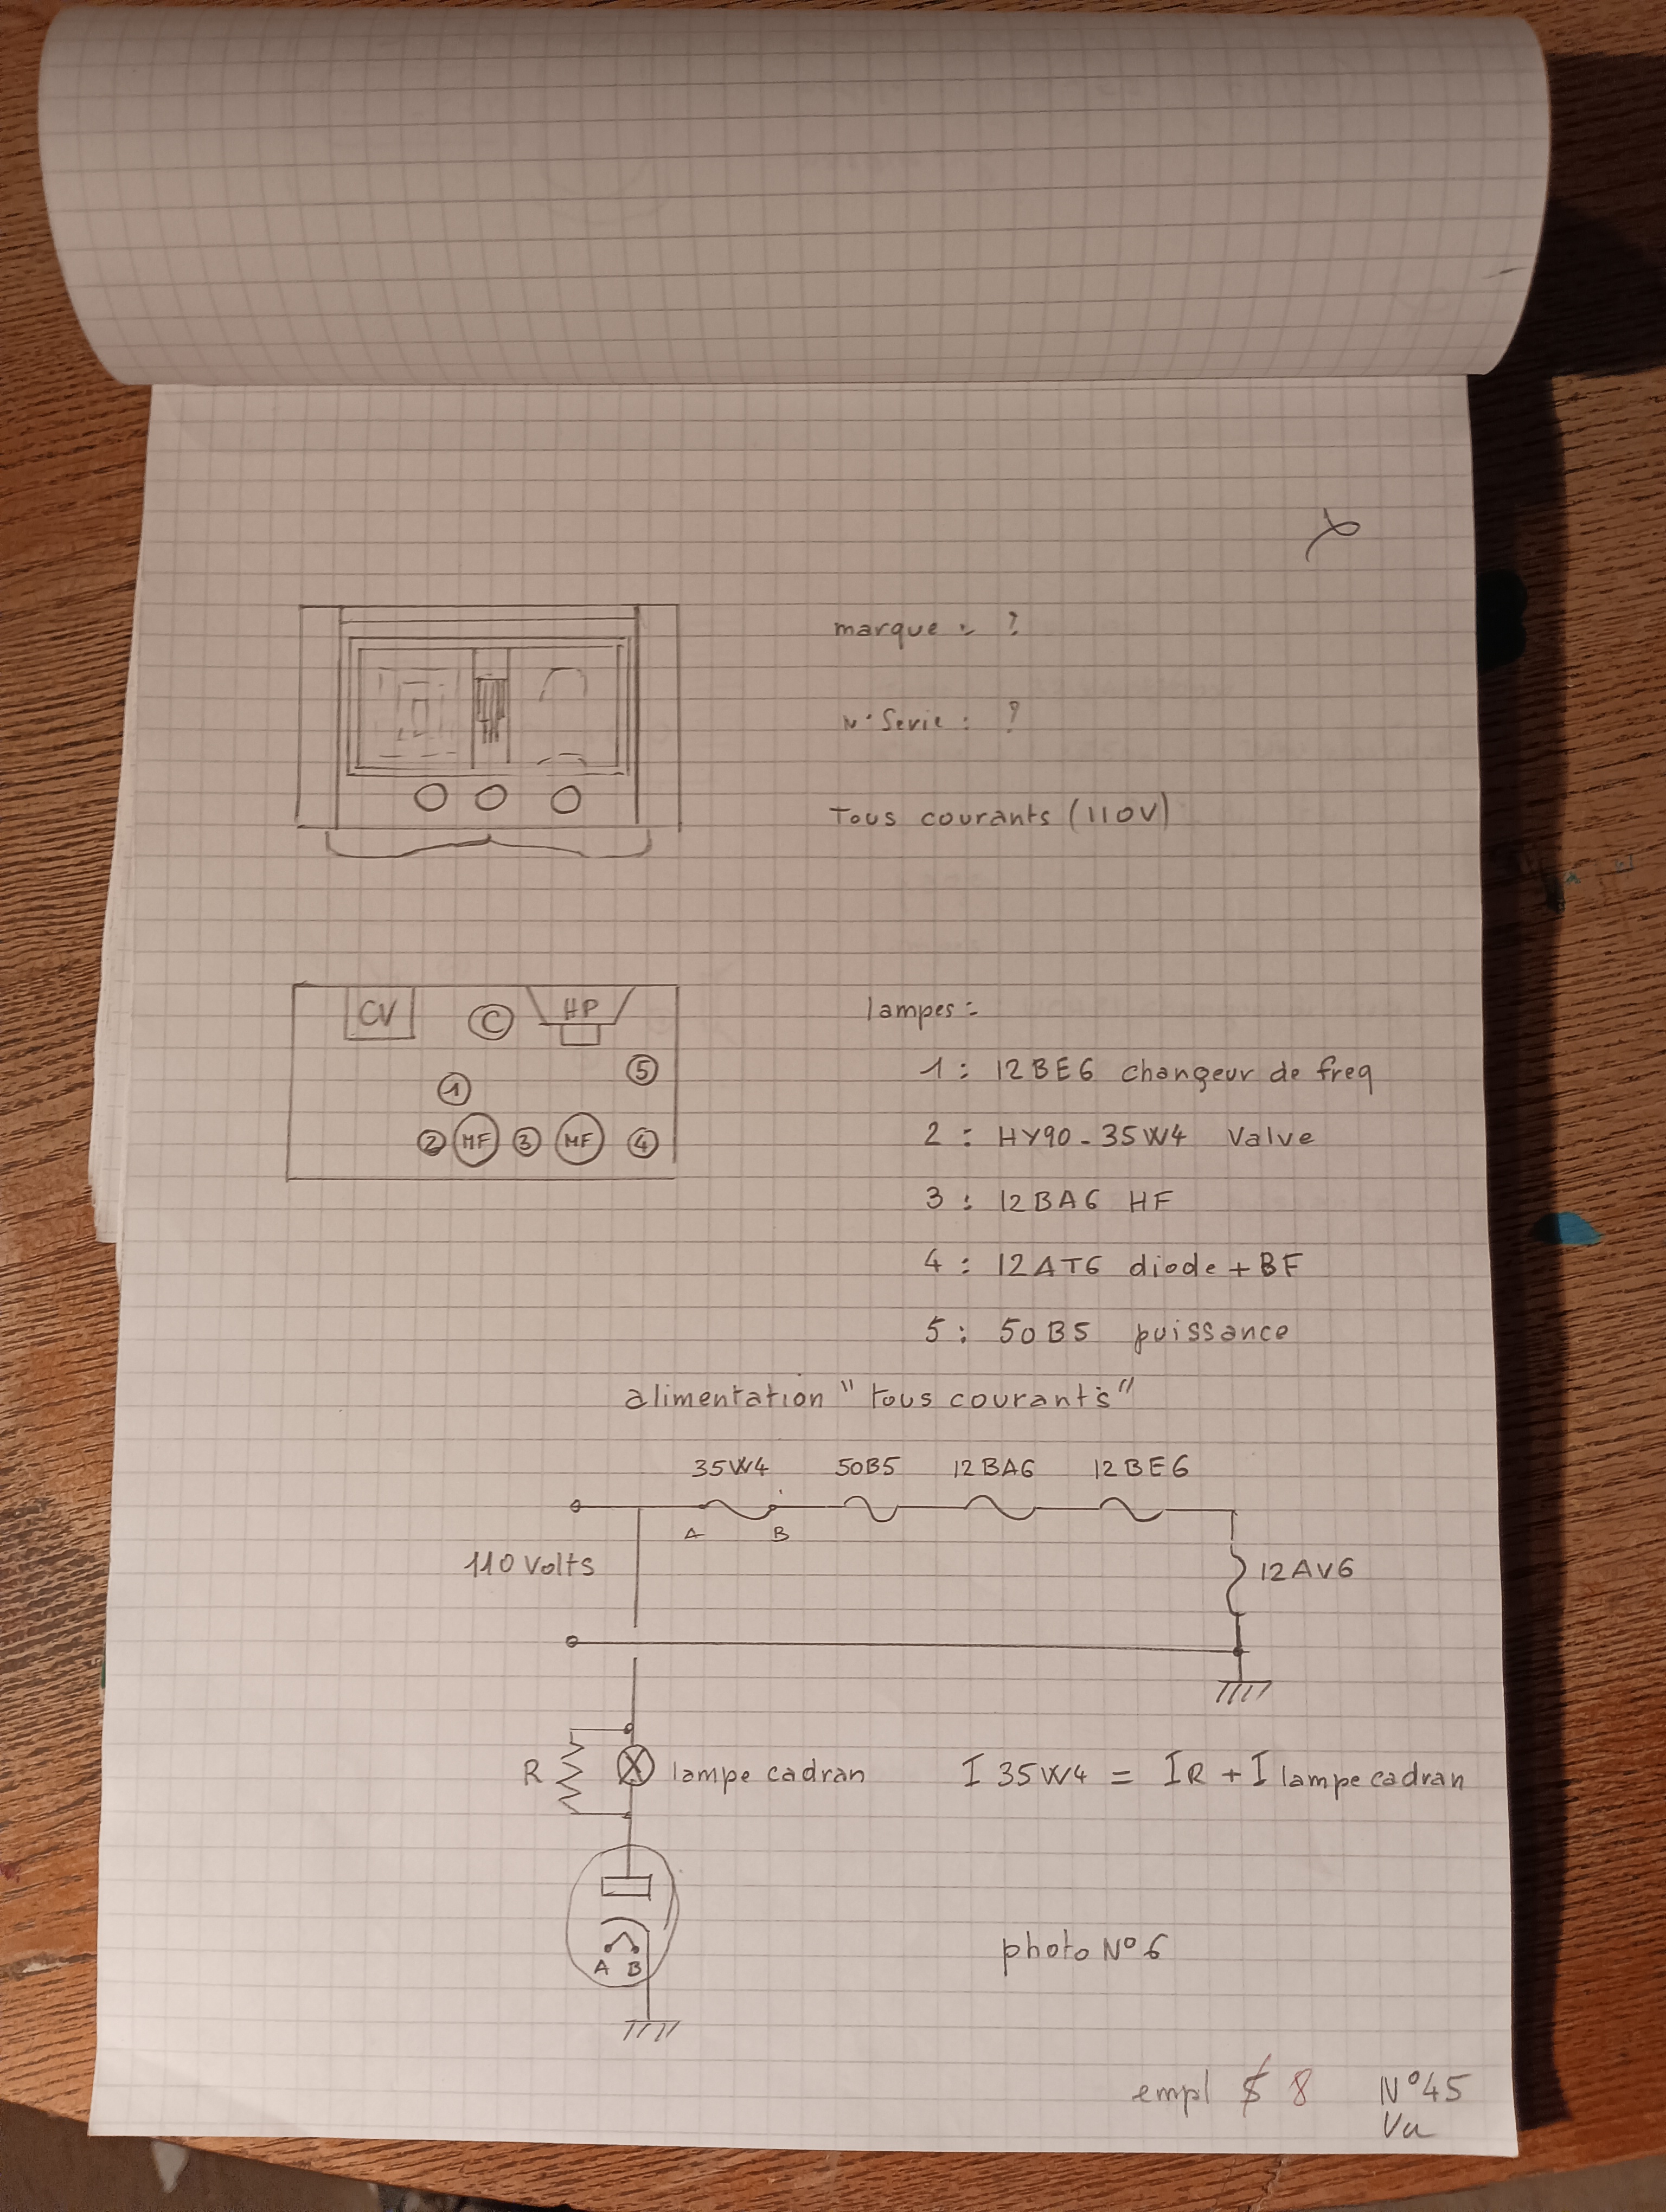 marque : ?
N° Serie : ?
Tous courants (110V)
CV
C
HP
5
1
2
MF
3
MF
4
lampes :
1 : 12BE6 changeur de freq
2 : HY90 - 35W4 Valve
3 : 12BA6 HF
4 : 12AT6 diode + BF
5 : 50B5 puissance
alimentation "tous courants"
35W4 50B5 12BA6 12BE6
A B
110 Volts
12AV6
R
lampe cadran
I 35W4 = IR + I lampe cadran
A B
photo N° 6
empl 8 N° 45
Vu